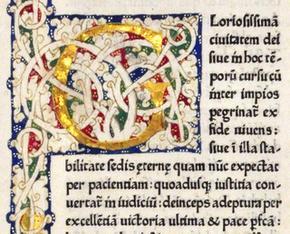 G Loriosissimā
ciuitatem dei
siue in hoc tē-
porū cursu cū
inter impios
peregrinat᷑ ex
fide uiuens:
siue ī illa sta
bilitate sedis ęternę quam nūc expectat
per pacientiam: quoadusq; iustitia con-
uertat᷑ in iudiciū: deinceps adeptura per
excellētiā uictoria ultima & pace pfcā: